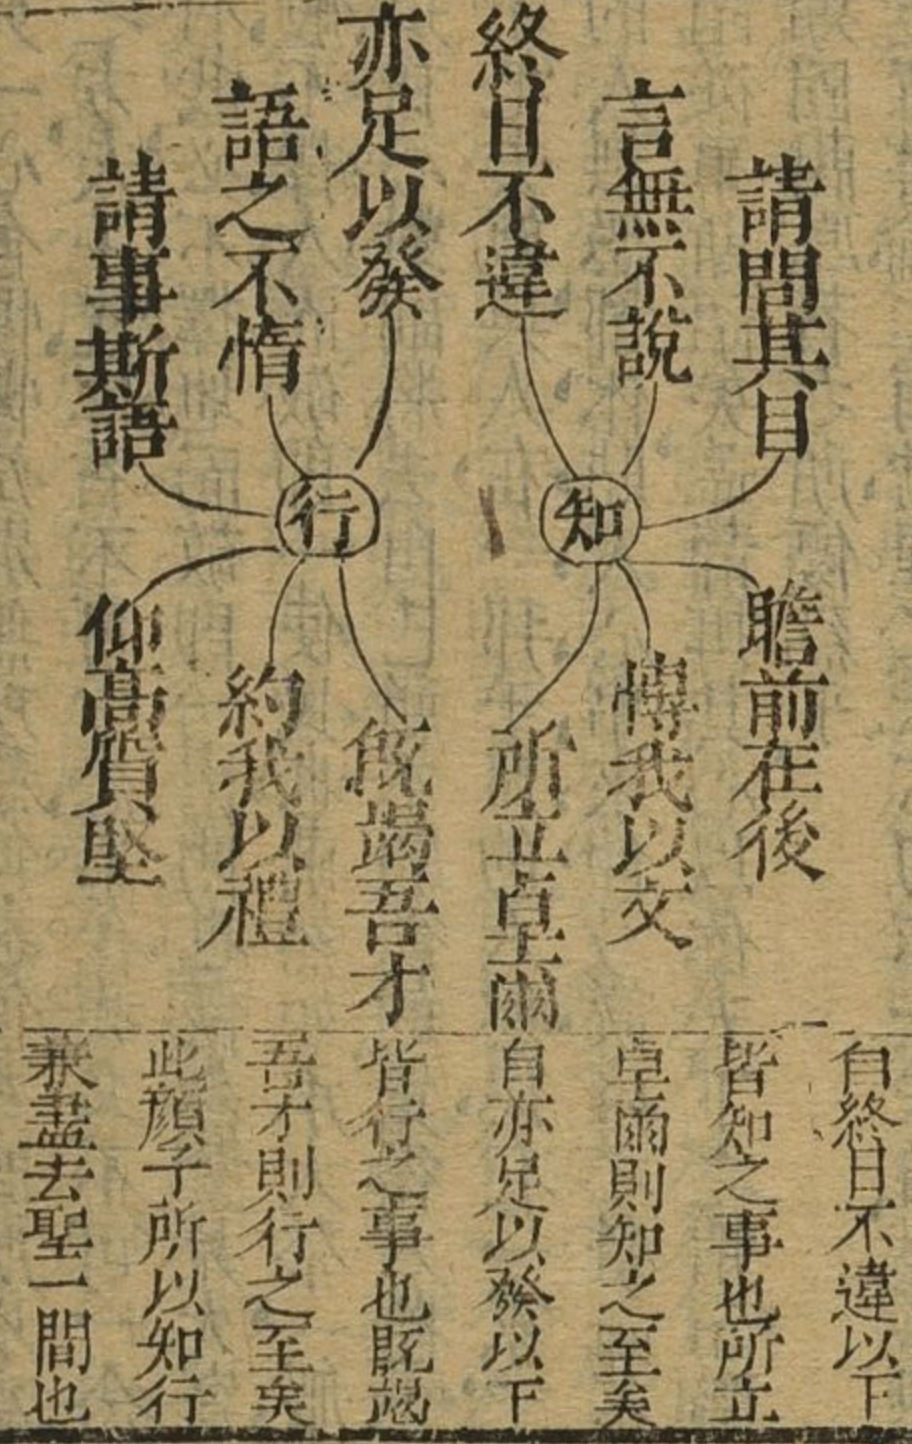 請問其目
言無不說
終日不違
知
瞻前在後
博我以文
所立卓爾
亦足以發
語之不惰
請事斯語
行
既竭吾才
約我以禮
仰高質堅
自終日不違以下
皆知之事也所立
卓爾則知之至矣
自亦足以發以下
皆行之事也既竭
吾才則行之至矣
此顏子所以知行
兼盡去聖一間也